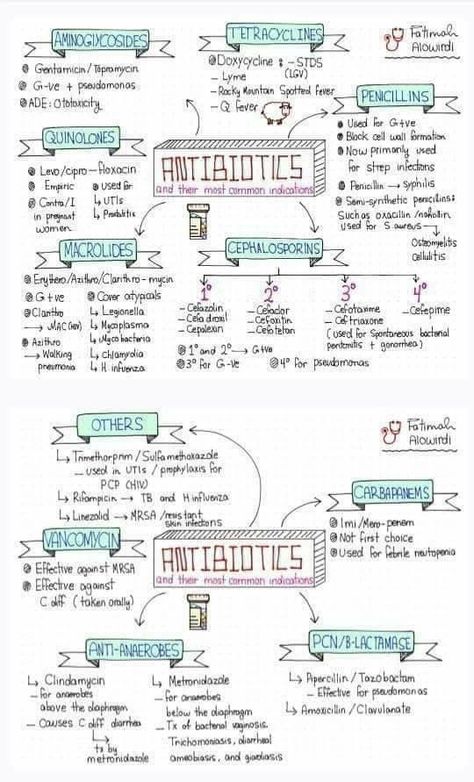 AMINOGLYCOSIDES
Gentamicin / Topramycin
G-ve + pseudomonas
ADE: Ototoxicity
TETRACYCLINES
Doxycycline : - STDS
(LGV)
- Lyme
- Rocky Mountain Spotted fever
- Q fever
Fatimah
Alowirdi
PENICILLINS
Used for G+ve
Block cell wall formation
Now primarily used
for strep infections
Penicillin → Syphilis
Semi-synthetic penicillins:
Such as oxacillin /nafcillin
used for S aureus
Osteomyelitis
Cellulitis
QUINOLONES
Levo/cipro - floxacin
Empiric
Used for
↳ UTIs
↳ Prostatitis
Contra/I
in pregnant
women
ANTIBIOTICS
and their most common indications
MACROLIDES
Erythero/Azithro/Clarithro - mycin
G+ve
Cover atypicals
↳ Legionella
↳ Mycoplasma
↳ Mycobacteria
↳ Chlamydia
↳ H influenza
Clarithro
→ MAC (HIV)
Azithro
→ Walking
pneumonia
CEPHALOSPORINS
1°
- Cefazolin
- Cefadroxil
- Cepalexin
2°
- Cefaclor
- Cefoxitin
- Cefotetan
3°
- Cefotaxime
- Ceftriaxone
(used for Spontaneous bacterial
peritonitis + gonorrhea)
4°
- Cefepime
1° and 2° → G+ve
3° for G-ve
4° for pseudomonas
OTHERS
↳ Trimethorprim / Sulfamethoxazole
- used in UTIs / prophylaxis for
PCP (HIV)
↳ Rifampicin → TB and H influenza
↳ Linezolid → MRSA /resistant
skin infections
Fatimah
Alowirdi
CARBAPANEMS
Imi/Mero-penem
Not first choice
Used for febrile neutopenia
VANCOMYCIN
Effective against MRSA
Effective against
C diff (taken orally)
ANTIBIOTICS
and their most common indications
ANTI-ANAEROBES
↳ Clindamycin
- for anaerobes
above the diaphragm
- Causes C diff diarrhea
↳ tx by
metronidazole
↳ Metronidazole
- for anaerobes
below the diaphragm
- Tx of bacterial vaginosis,
Trichomoniasis, diarrheal
ameobiasis, and giardiasis
PCN/B-LACTAMASE
↳ Apercillin / Tazobactam
- Effective for pseudomonas
↳ Amoxicillin / Clavulanate